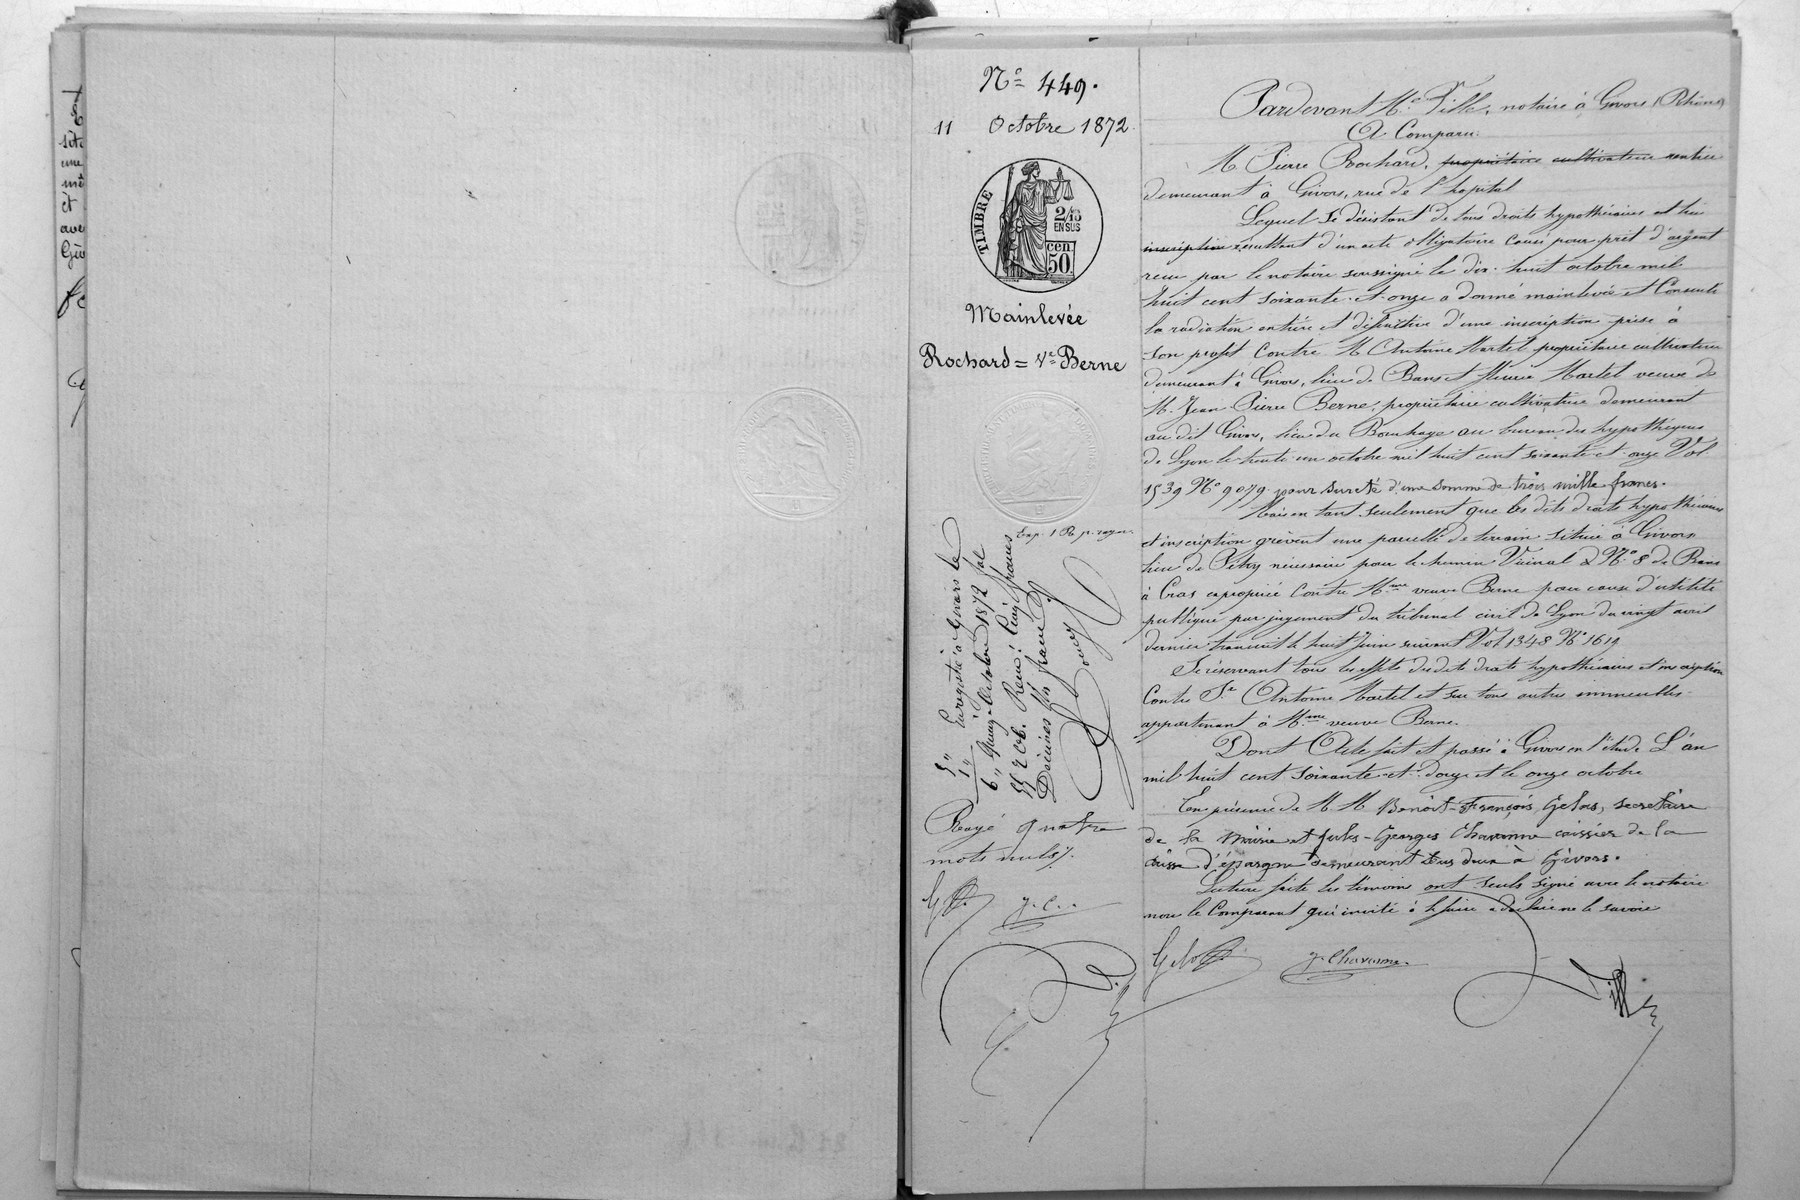 N° 449.
11 Octobre 1872.
TIMBRE
2/10
EN SUS
50 cen.
Mainlevée
Rochard = Ve Berne
Enregistré à Givors le
Quinze Octobre 1872 fol
55 R c 6. Reçu: Cinq francs
Décimes Un franc
5"
1"
6"
Rayé quatre
mots nuls
G. J. C.
Pardevant Me Tille, notaire à Givors (Rhône)
A Comparu:
M. Pierre Rochard, propriétaire cultivateur rentier
demeurant à Givors, rue de l'hopital
Lequel se désistant de tous droits hypothécaires et
inscription résultant d'un acte obligatoire causé pour prêt d'argent
reçu par le notaire soussigné le dix-huit octobre mil
huit cent soixante-et-onze a donné mainlevée et Consenti
la radiation entière et définitive d'une inscription prise à
son profit Contre M. Antoine Martel propriétaire cultivateur
demeurant à Givors, lieu de Bans et Marie Martel veuve de
M. Jean Pierre Berne, propriétaire cultivateur demeurant
au dit Givors, lieu du au bureau des hypothèques
de Lyon le trente-un octobre mil huit cent soixante-et-onze Vol.
1539 N° 9079 pour sureté d'une somme de trois mille francs.
Mais en tant seulement que les dits droits hypothécaires
et inscription grèvent une parcelle de terrain située à Givors
lieu de nécessaire pour le chemin Vicinal N° 8 de Bans
à Cras exproprié Contre Mme veuve Berne pour cause d'utilité
publique par jugement du tribunal civil de Lyon du vingt avril
dernier transcrit le huit Juin suivant Vol. 1348 N° 1619
Se réservant tous les effets desdits droits hypothécaires et inscription
Contre Sr Antoine Martel et sur tous autres immeubles
appartenant à Mme veuve Berne.
Dont Acte fait et passé à Givors en l'étude L'an
mil huit cent soixante-et-douze et le onze octobre
En présence de M M Benoit-François Gelas, secrétaire
de la Mairie et Jules-Georges Chavanne caissier de la
caisse d'épargne demeurant tous deux à Givors.
Lecture faite les témoins ont seuls signé avec le notaire
non le Comparant qui invité à le faire a déclaré ne le savoir
Gelas J. Chavanne Tille